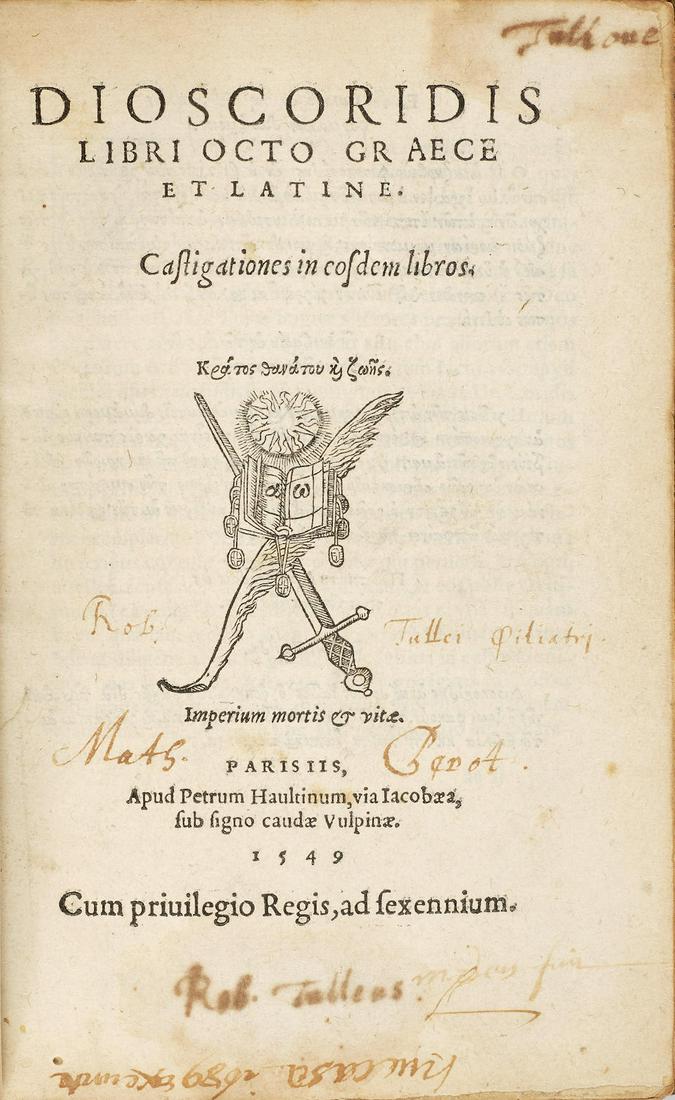 DIOSCORIDIS
LIBRI OCTO GRAECE
ET LATINE.
Caſtigationes in eoſdem libros.
Κράτος θανάτου ϗ ζωῆς.
α ω
Rob. Tullei Philiatri.
Imperium mortis & vitæ.
Math. Perot.
PARISIIS,
Apud Petrum Haultinum, via Iacobæa,
ſub ſigno caudæ Vulpinæ.
1549
Cum priuilegio Regis, ad ſexennium.
Rob. Tulleus